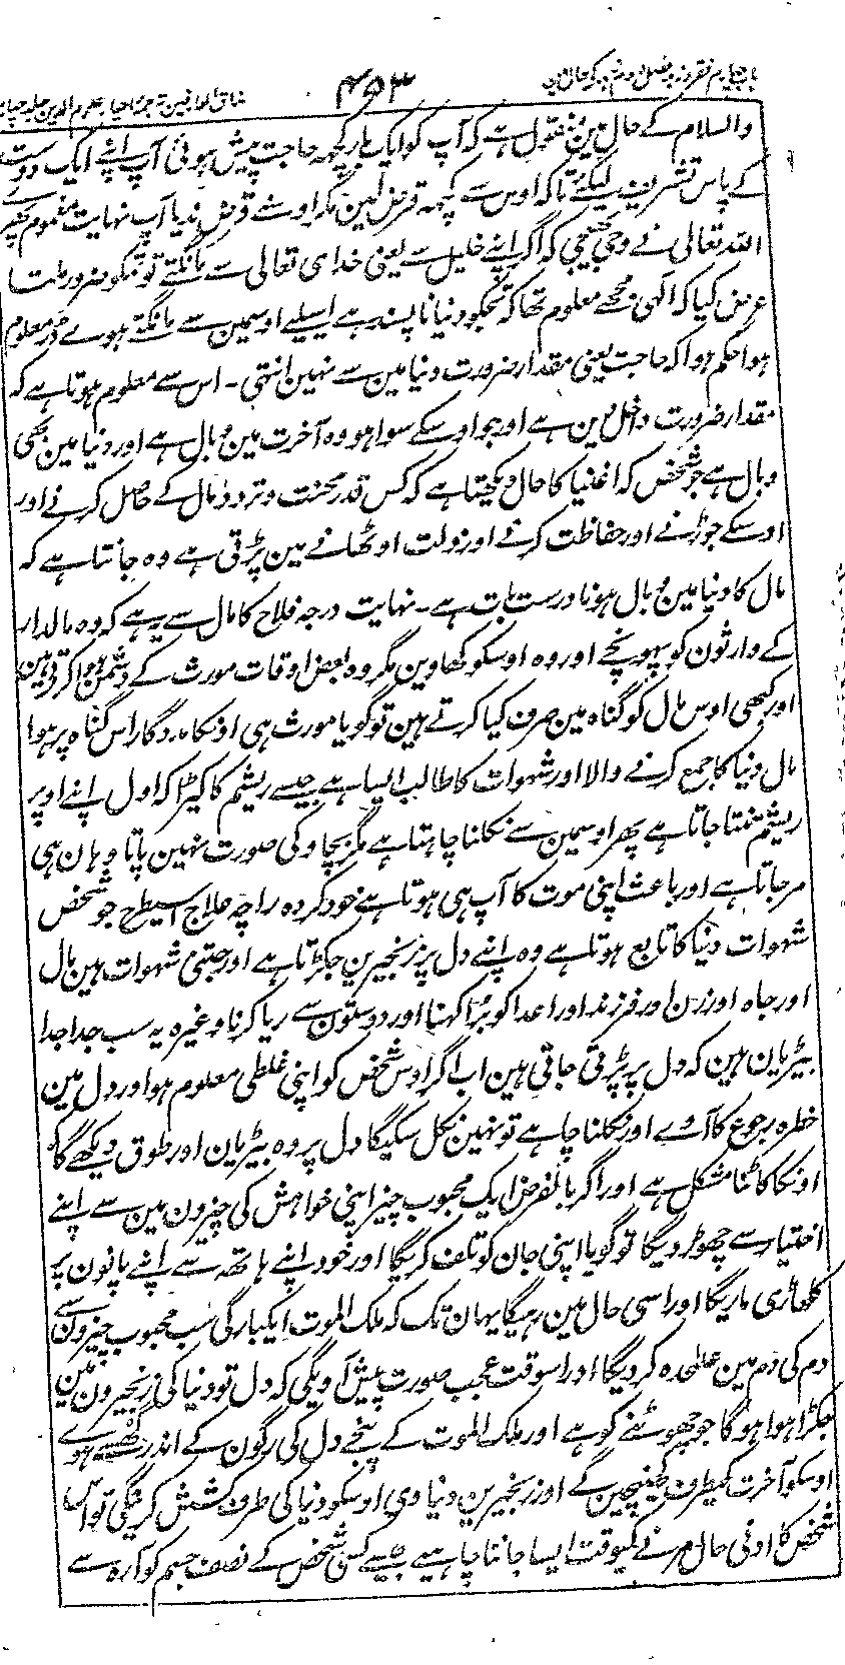 باب چہارم فقر و زہد فصل دوم زہد کے حال میں
۴۵۳
مذاق العارفین ترجمۂ احیاء علوم الدین جلد چہارم
والسلام کے حال مین منقول ہے کہ آپ کو ایک بار کچھہ حاجت پیش ہوئی آپ اپنے ایک دوست
کے پاس تشریف لیگئے تاکہ اوس سے کچھہ قرض لین مگر اوسنے قرض ندیا آپ نہایت مغموم پھرے
اللہ تعالی نے وحی بھیجی کہ اگر اپنے خلیل سے یعنی خدای تعالی سے مانگتے تو تمکو ضرور ملتا
عرض کیا کہ الٰہی مجھے معلوم تھا کہ تجکو دنیا ناپسند ہے اسلیے اوسمین سے مانگتے ہوے ڈر معلوم
ہوا حکم ہوا کہ حاجت یعنی مقدار ضرورت دنیا مین سے نہین انتہی ۔ اس سے معلوم ہوتا ہے کہ
مقدار ضرورت داخل دین ہے اور جو اوسکے سوا ہو وہ آخرت مین وبال ہے اور دنیا مین بھی
وبال ہے جو شخص کہ اغنیا کا حال دیکھتا ہے کہ کس قدر محنت و تردد مال کے حاصل کرنے اور
اوسکے جوڑنے اور حفاظت کرنے اور ذلت اوٹھانے مین پڑتی ہے وہ جانتا ہے کہ
مال کا دنیا مین وبال ہونا درست بات ہے ۔ نہایت درجہ فلاح کا مال سے یہ ہے کہ وہ مالدار
کے وارثون کو پہونچے اور وہ اوسکو کھاوین مگر وہ بعض اوقات مورث کے دشمن ہوا کرتے ہین
اور کبھی اوس مال کو گناہ مین صرف کیا کرتے ہین تو گویا مورث ہی اونکا مددگار اس گناہ پر ہوا
مال دنیا کا جمع کرنے والا اور شہوات کا طالب ایسا ہے جیسے ریشم کا کیڑا کہ اول اپنے اوپر
ریشم بنتا جاتا ہے پھر اوسمین سے نکلنا چاہتا ہے مگر بچاو کی صورت نہین پاتا وہان ہی
مر جاتا ہے اور باعث اپنی موت کا آپ ہی ہوتا ہے خود کردہ را چہ علاج اسیطرح جو شخص
شہوات دنیا کا تابع ہوتا ہے وہ اپنے دل پر زنجیرین جکڑتا ہے اور جتنی شہوات ہین مال
اور جاہ اور زن اور فرزند اور اعدا کو برا کہنا اور دوستون سے ریا کرنا وغیرہ یہ سب جدا جدا
بیڑیان ہین کہ دل پر پڑتی جاتی ہین اب اگر اوس شخص کو اپنی غلطی معلوم ہو اور دل مین
خطرہ رجوع کا آوے اور نکلنا چاہے تو نہین نکل سکیگا دل پر وہ بیڑیان اور طوق دیکھے گا کہ
اونکا کاٹنا مشکل ہے اور اگر بالفرض ایک محبوب چیز اپنی خواہش کی چیزون مین سے اپنے
اختیار سے چھوڑ دیگا تو گویا اپنی جان کو تلف کریگا اور خود اپنے ہاتھہ سے اپنے پانون پر
کلھاڑی ماریگا اور اسی حال مین رہیگا یہان تک کہ ملک الموت ایکبارگی سب محبوب چیزون سے
دم کی دم مین علٰحدہ کر دیگا اور اسوقت عجب صورت پیش آویگی کہ دل تو دنیا کی زنجیرون مین
جکڑا ہوا ہوگا جو چھوٹنے کو ہے اور ملک الموت کے پنجے دل کی رگون کے اندر گھسے ہوے
اوسکو آخرت کیطرف کھینچین گے اور زنجیرین دنیاوی اوسکو دنیا کی طرف کشش کرینگی تو اس
شخص کا ادنی حال مرنے کیوقت ایسا جاننا چاہیے جیسے کسی شخص کے نصف جسم کو آرہ سے